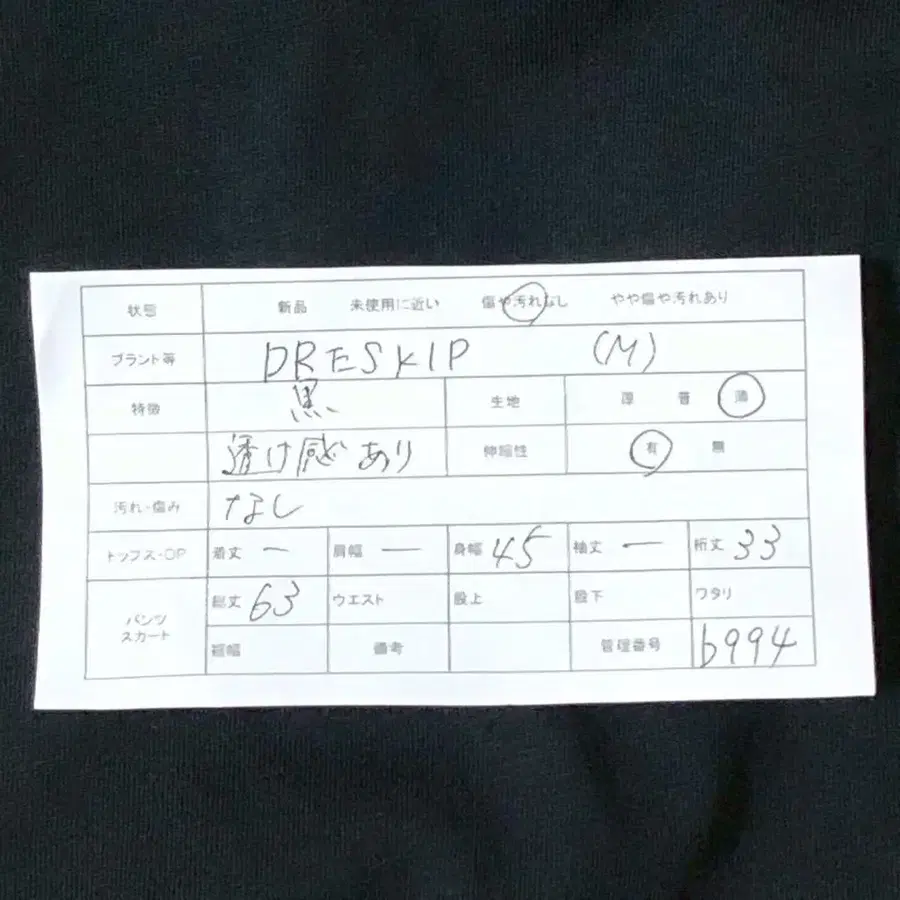 状態 新品 未使用に近い 傷や汚れなし やや傷や汚れあり
ブランド等 DRESKIP (M)
特徴 黒 生地 厚 普 薄
透け感あり 伸縮性 有 無
汚れ・傷み なし
トップス・OP 着丈 ー 肩幅 ー 身幅 45 袖丈 ー 裄丈 33
パンツ スカート 総丈 63 ウエスト 股上 股下 ワタリ
裾幅 備考 管理番号 b994